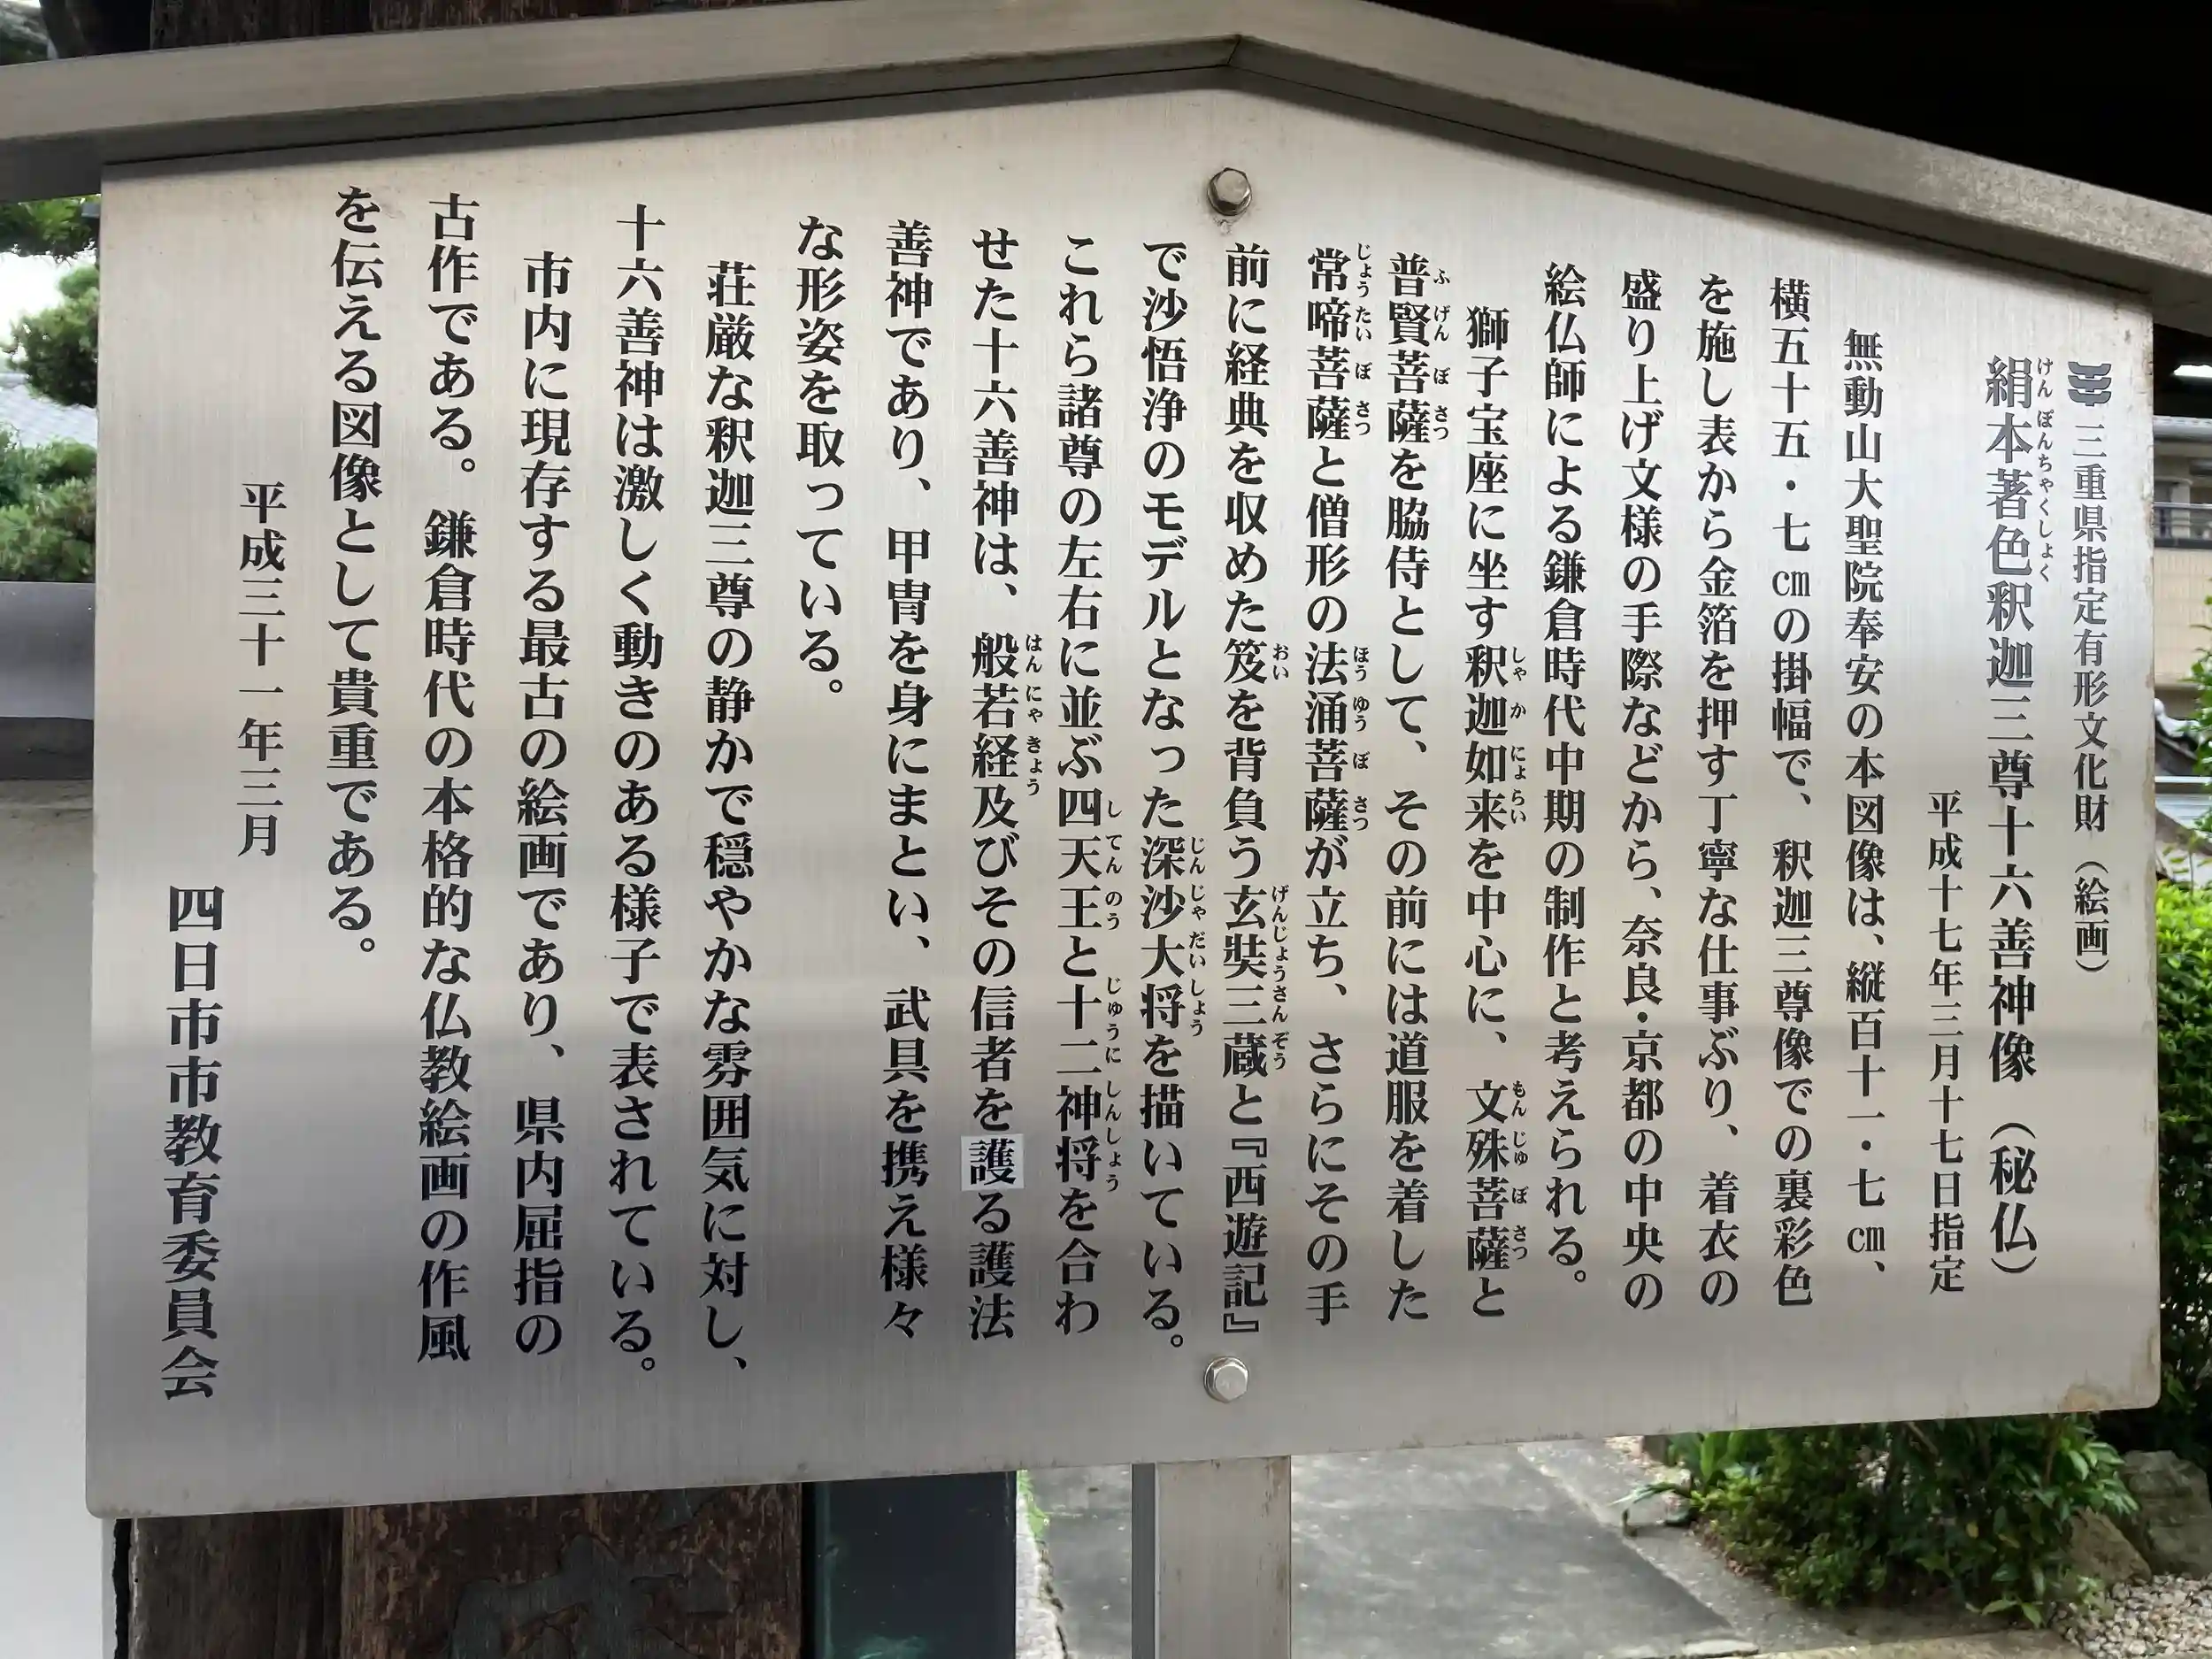 三重県指定有形文化財（絵画）
絹本著色釈迦三尊十六善神像（秘仏）
けんぽんちゃくしょく
平成十七年三月十七日指定
無動山大聖院奉安の本図像は、縦百十一・七㎝、
横五十五・七㎝の掛幅で、釈迦三尊像での裏彩色
を施し表から金箔を押す丁寧な仕事ぶり、着衣の
盛り上げ文様の手際などから、奈良・京都の中央の
絵仏師による鎌倉時代中期の制作と考えられる。
獅子宝座に坐す釈迦如来を中心に、文殊菩薩と
しゃかにょらい もんじゅぼさつ
普賢菩薩を脇侍として、その前には道服を着した
ふげんぼさつ
常啼菩薩と僧形の法涌菩薩が立ち、さらにその手
じょうたいぼさつ ほうゆうぼさつ
前に経典を収めた笈を背負う玄奘三蔵と『西遊記』
おい げんじょうさんぞう
で沙悟浄のモデルとなった深沙大将を描いている。
じんじゃだいしょう
これら諸尊の左右に並ぶ四天王と十二神将を合わ
してんのう じゅうにしんしょう
せた十六善神は、般若経及びその信者を護る護法
はんにゃきょう
善神であり、甲冑を身にまとい、武具を携え様々
な形姿を取っている。
荘厳な釈迦三尊の静かで穏やかな雰囲気に対し、
十六善神は激しく動きのある様子で表されている。
市内に現存する最古の絵画であり、県内屈指の
古作である。鎌倉時代の本格的な仏教絵画の作風
を伝える図像として貴重である。
平成三十一年三月
四日市市教育委員会